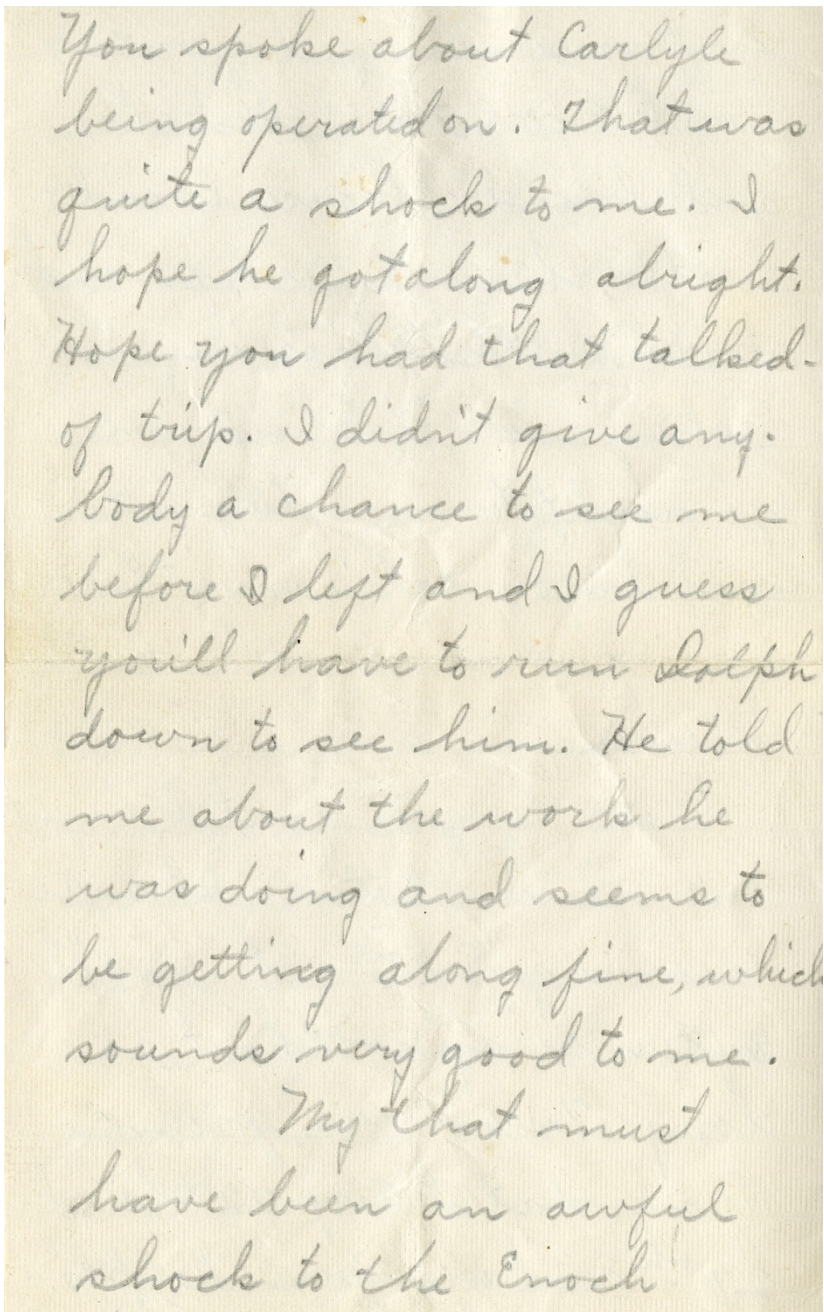 You spoke about Carlyle
being operated on. That was
quite a shock to me. I
hope he got along alright.
Hope you had that talked-
of trip. I didn't give any-
body a chance to see me
before I left and I guess
you'll have to run Dolph
down to see him. He told
me about the work he
was doing and seems to
be getting along fine, which
sounds very good to me.
My that must
have been an awful
shock to the Enoch